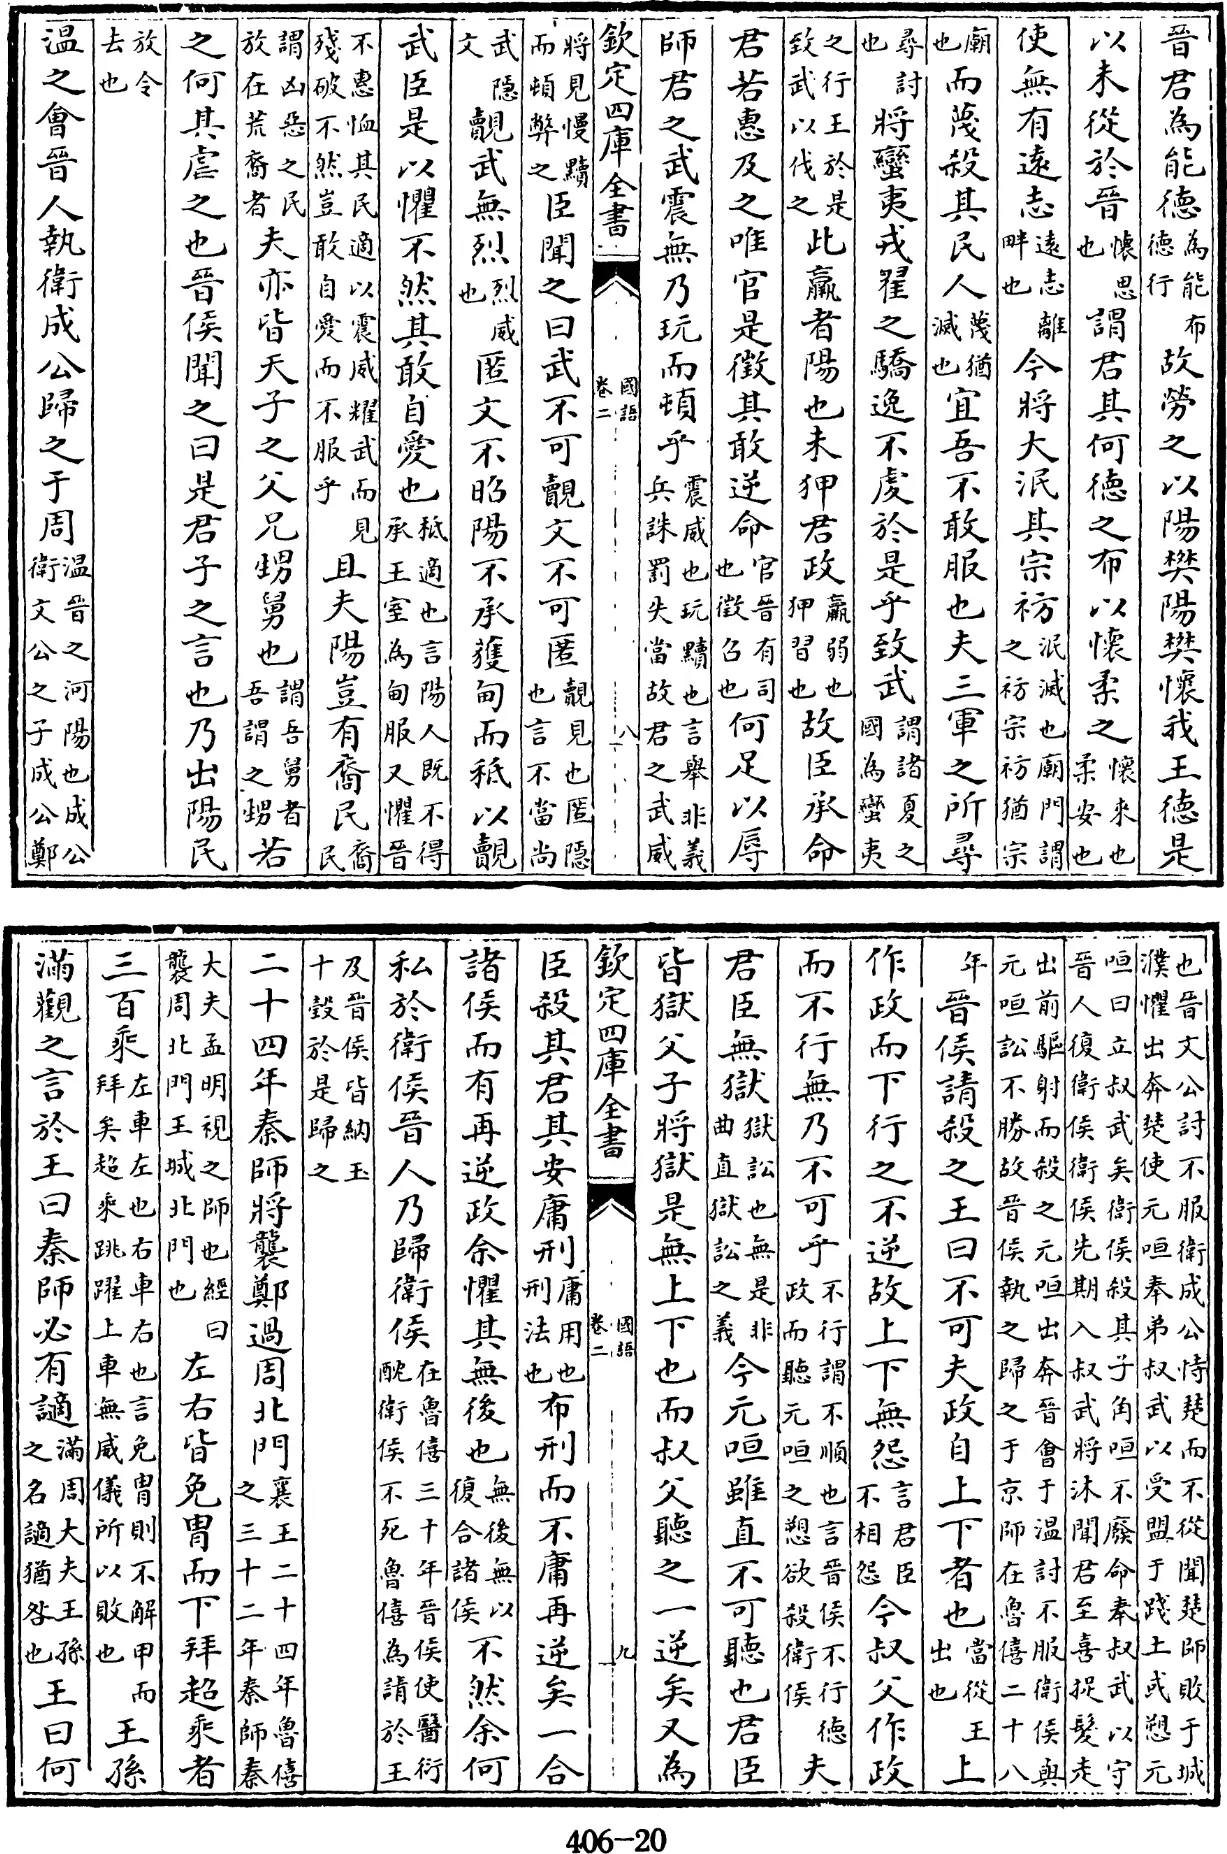 晉君為能德為能布德行故勞之以陽樊陽樊懷我王德是
以未從於晉懷思也謂君其何德之布以懷柔之懷來也柔安也
使無有遠志遠志離畔也今將大泯其宗祊泯滅也廟門謂之祊宗祊猶宗
廟也而蔑殺其民人蔑猶滅也宜吾不敢服也夫三軍之所尋
尋討也將蠻夷戎翟之驕逸不虔於是乎致武謂諸夏之國為蠻夷
之行王於是致武以伐之此羸者陽也未狎君政羸弱也狎習也故臣承命
君若惠及之唯官是徵其敢逆命官晉有司也徵召也何足以辱
師君之武震無乃玩而頓乎震威也玩黷也言舉非義兵誅罰失當故君之武威
欽定四庫全書 國語 卷二 八
將見慢黷而頓弊之臣聞之曰武不可覿文不可匿覿見也匿隱也言不當尚
武隱文覿武無烈烈威也匿文不昭陽不承獲甸而秪以覿
武臣是以懼不然其敢自愛也秪適也言陽人既不得承王室為甸服又懼晉
不惠恤其民適以震威耀武而見殘破不然豈敢自愛而不服乎且夫陽豈有裔民裔民
謂凶惡之民放在荒裔者夫亦皆天子之父兄甥舅也謂吾舅者吾謂之甥若
之何其虐之也晉侯聞之曰是君子之言也乃出陽民
放令去也
溫之會晉人執衛成公歸之于周溫晉之河陽也成公衛文公之子成公鄭
也晉文公討不服衛成公恃楚而不從聞楚師敗于城濮懼出奔楚使元咺奉弟叔武以受盟于踐土或愬元
咺曰立叔武矣衛侯殺其子角咺不廢命奉叔武以守晉人復衛侯衛侯先期入叔武將沐聞君至喜捉髮走
出前驅射而殺之元咺出奔晉會于溫討不服衛侯與元咺訟不勝故晉侯執之歸之于京師在魯僖二十八
年晉侯請殺之王曰不可夫政自上下者也當從王出也上
作政而下行之不逆故上下無怨言君臣不相怨今叔父作政
而不行無乃不可乎不行謂不順也言晉侯不行德政而聽元咺之愬欲殺衛侯夫
君臣無獄獄訟也無是非曲直獄訟之義今元咺雖直不可聽也君臣
皆獄父子將獄是無上下也而叔父聽之一逆矣又為
欽定四庫全書 國語 卷二 九
臣殺其君其安庸刑庸用也刑法也布刑而不庸再逆矣一合
諸侯而有再逆政余懼其無後也無後無以復合諸侯不然余何
私於衛侯晉人乃歸衛侯在魯僖三十年晉侯使醫衍酖衛侯不死魯僖為請於王
及晉侯皆納玉十瑴於是歸之
二十四年秦師將襲鄭過周北門襄王二十四年魯僖之三十二年秦師秦
大夫孟明視之師也經曰襲周北門王城北門也左右皆免冑而下拜超乘者
三百乘左車左也右車右也言免冑則不解甲而拜矣超乘跳躍上車無威儀所以敗也王孫
滿觀之言於王曰秦師必有讁滿周大夫王孫之名讁猶咎也王曰何
406-20